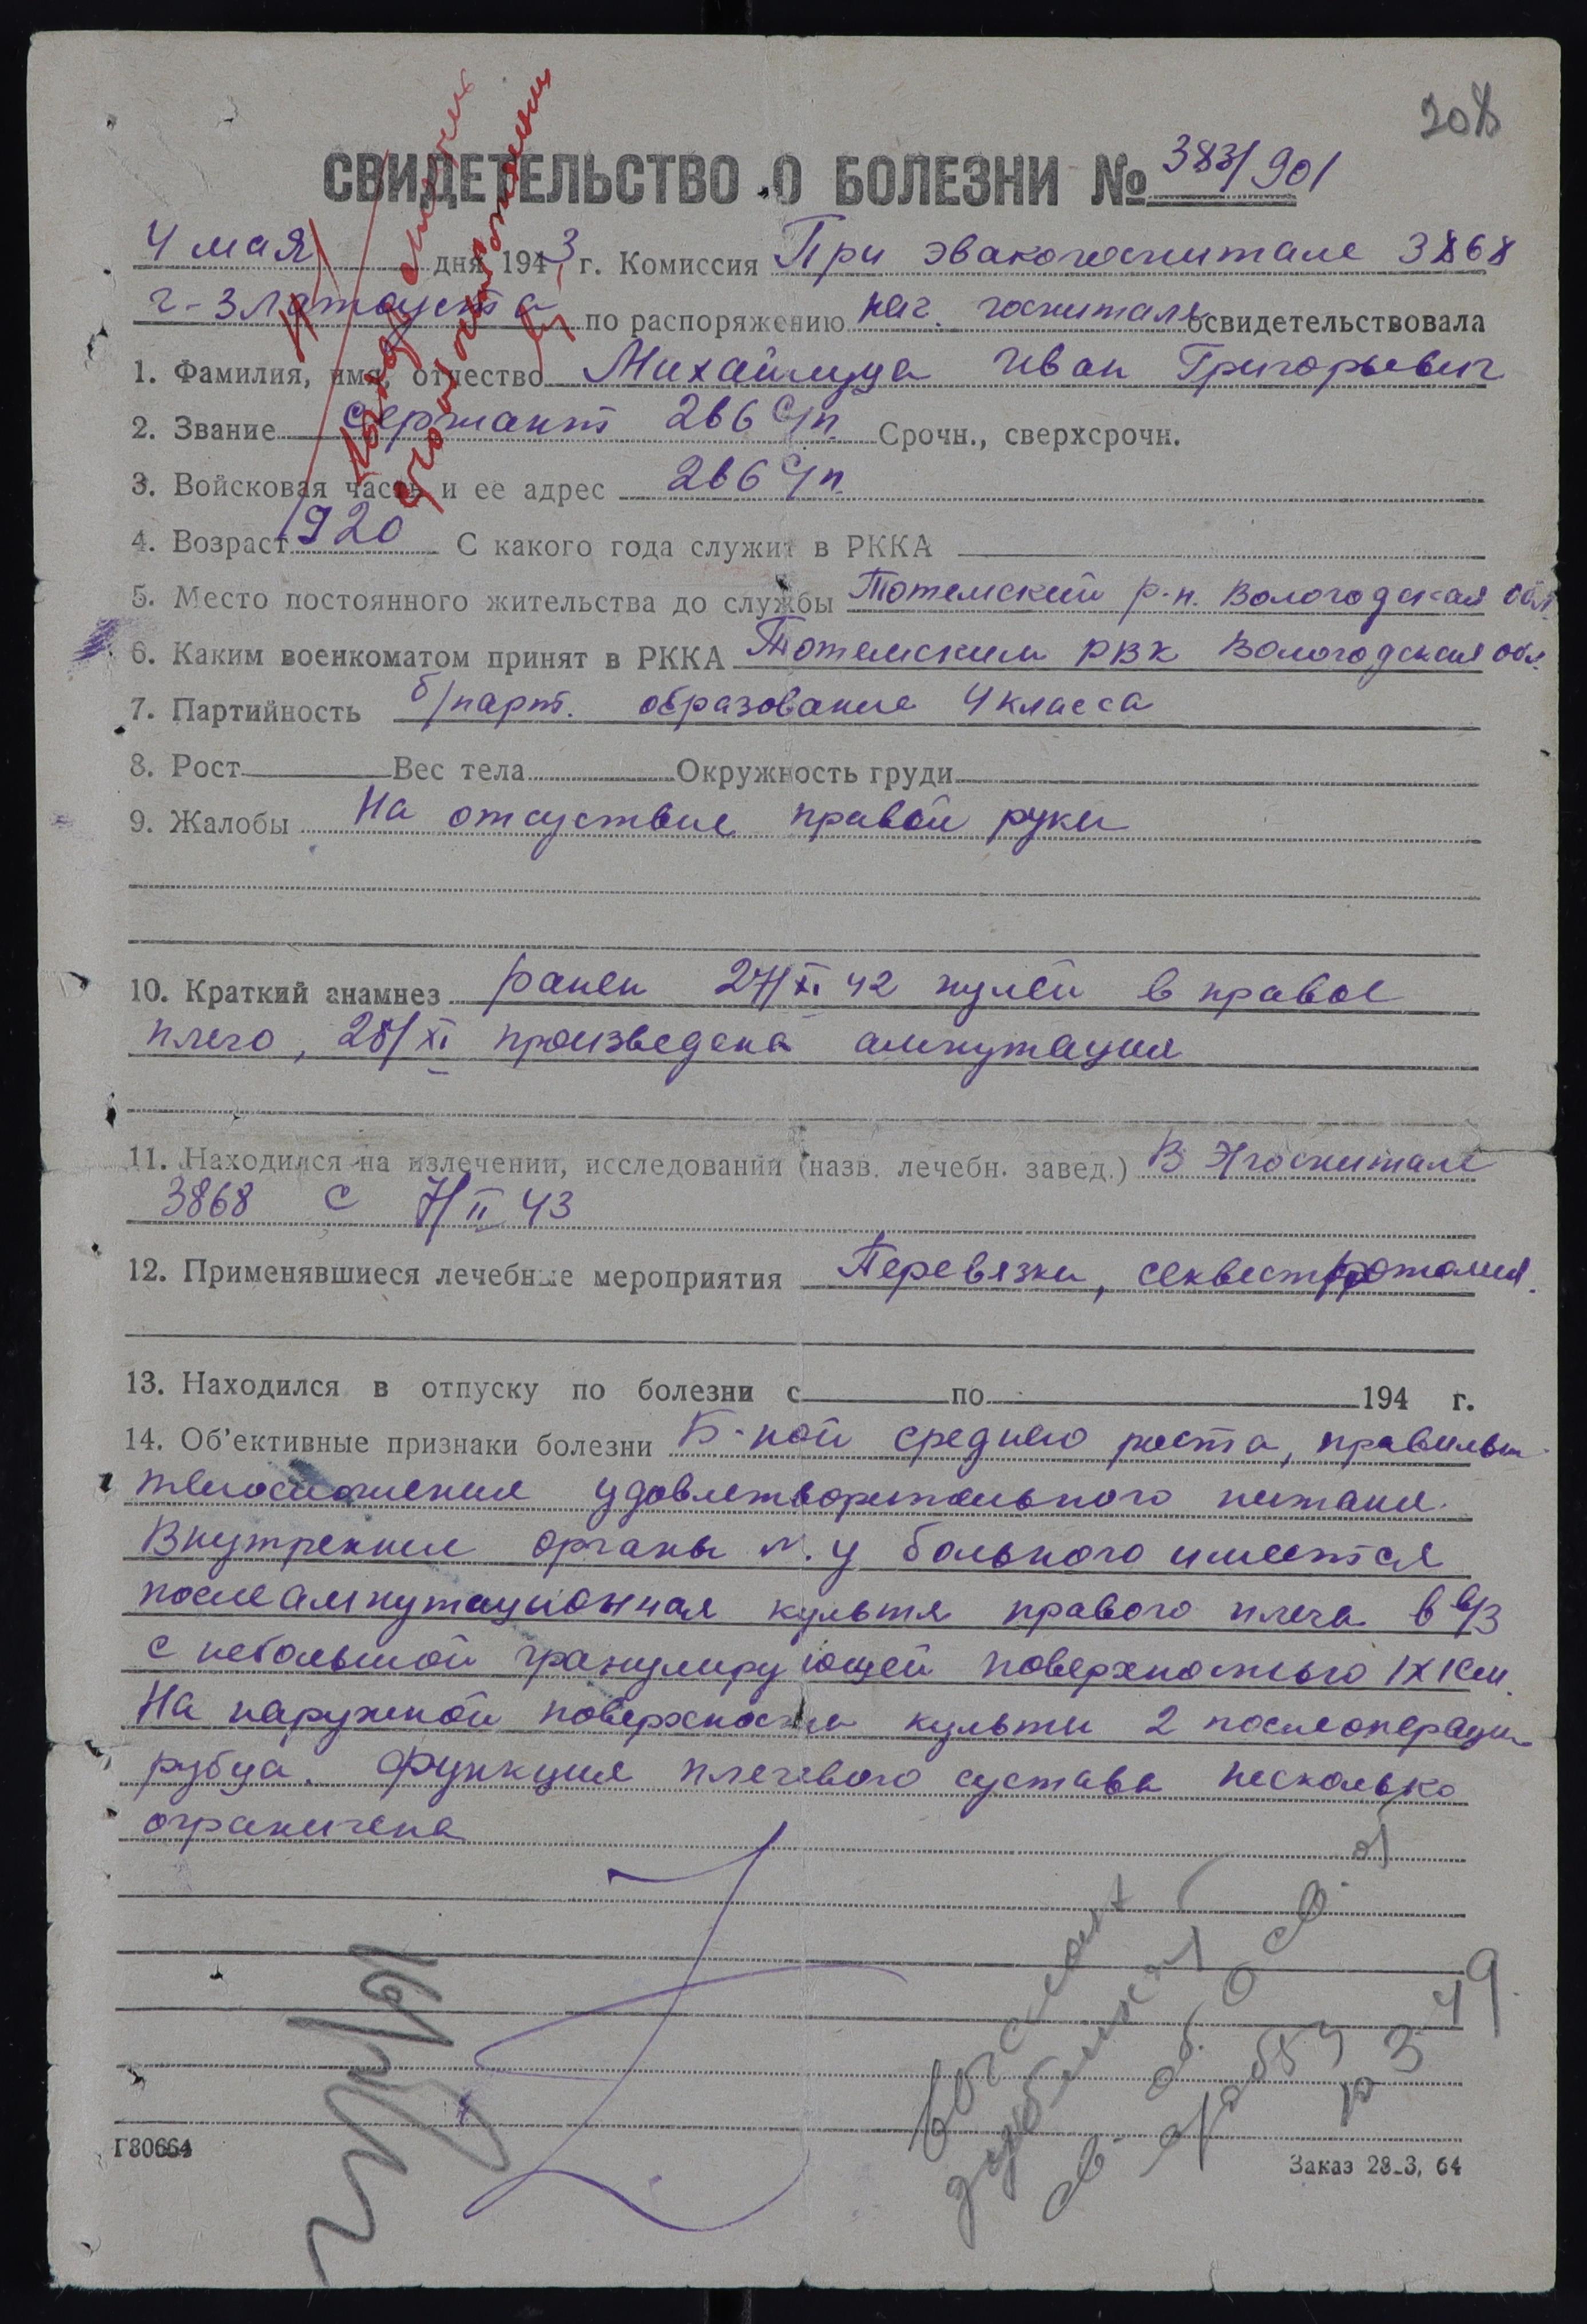 208
СВИДЕТЕЛЬСТВО О БОЛЕЗНИ № 383/901
4 мая дня 1943 г. Комиссия При эвакогоспитале 3868
г-Златоуста по распоряжению нач. госпиталь освидетельствовала
1. Фамилия, имя, отчество Михайлуца Иван Григорьевич
2. Звание Сержант 266 с/п. Срочн., сверхсрочн.
3. Войсковая часть и ее адрес 266 с/п.
4. Возраст 1920 С какого года служит в РККА
5. Место постоянного жительства до службы Тотемский р-н. Вологодская обл
6. Каким военкоматом принят в РККА Тотемским РВК Вологодская обл.
7. Партийность б/парт. образование 4 класса
8. Рост Вес тела Окружность груди
9. Жалобы На отсуствие правой руки
10. Краткий анамнез ранен 27/XI 42 пулей в правое
плечо, 28/XI произведена ампутация
11. Находился на излечении, исследовании (назв. лечебн. завед.) В Э/госпитале
3868 с 7/II 43
12. Применявшиеся лечебные мероприятия Перевязки, секвестротомия.
13. Находился в отпуску по болезни с по 194 г.
14. Об'ективные признаки болезни Б-ной среднего роста, правильн
телосложения удовлетворительного питания.
Внутренние органы N. у больного имеется
послеампутационная культя правого плеча в в/3
с небольшой гранулирующей поверхностью 1х1см.
На наружной поверхности культи 2 послеопераци
рубца. Функция плечевого сустава несколько
ограничена
выслан
дубликат
св. об. о
Г80664
Заказ 28-3, 64